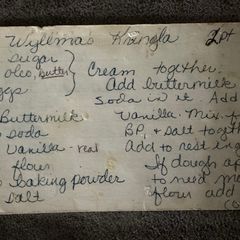 Wyllma's Kringla 2pt
sugar
oleo, butter
Cream together.
Add buttermilk
eggs
Soda in it. Add
Buttermilk
Vanilla. Mix f
Soda
B.P. & salt togeth
Vanilla - real
Add to rest ing
flour
If dough ap
baking powder
to need mo
salt
flour add